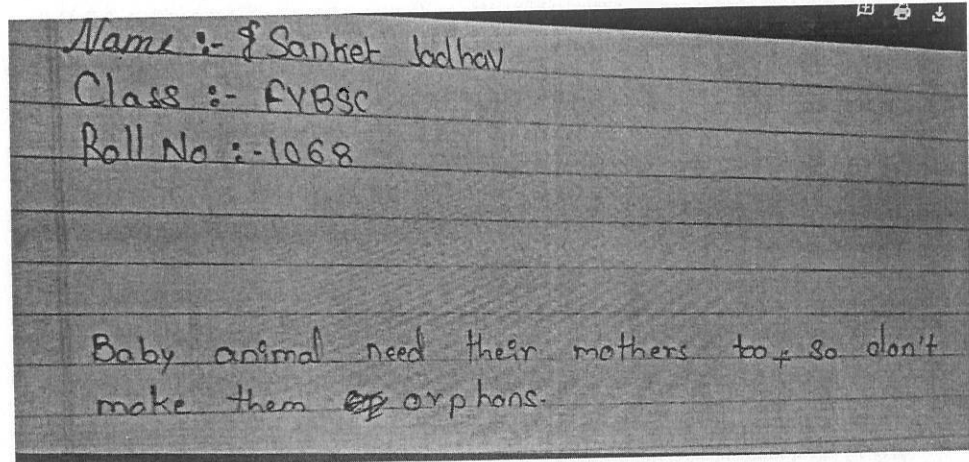 Name :- Sanket Jadhav
Class :- FYBSC
Roll No :- 1068
Baby animal need their mothers too, so don't
make them orphans.